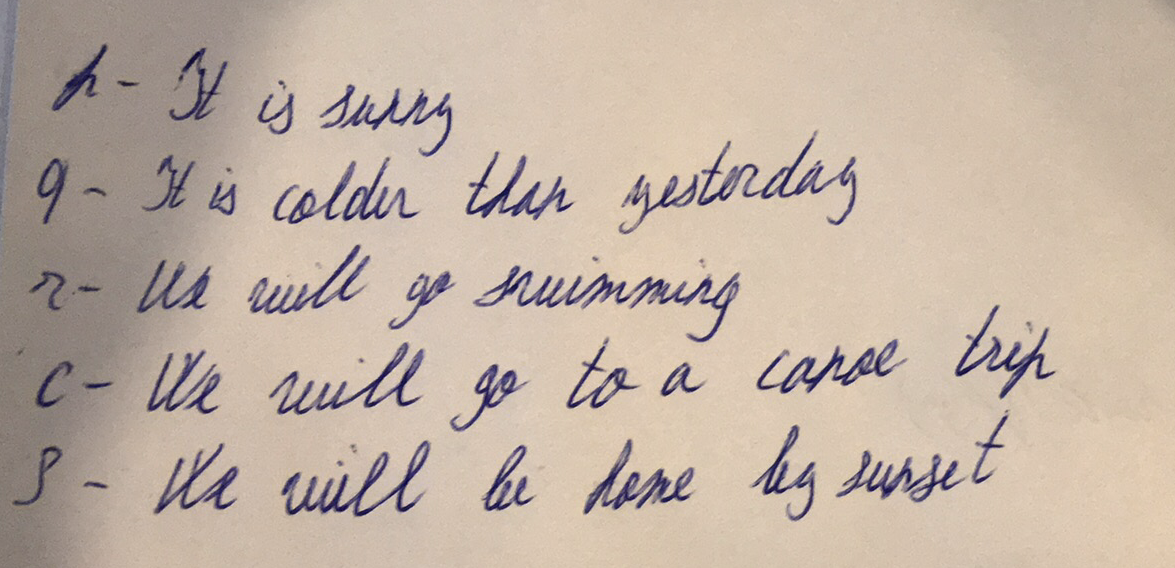 p - It is sunny
q - It is colder than yesterday
r - We will go swimming
c - We will go to a canoe trip
S - We will be home by sunset